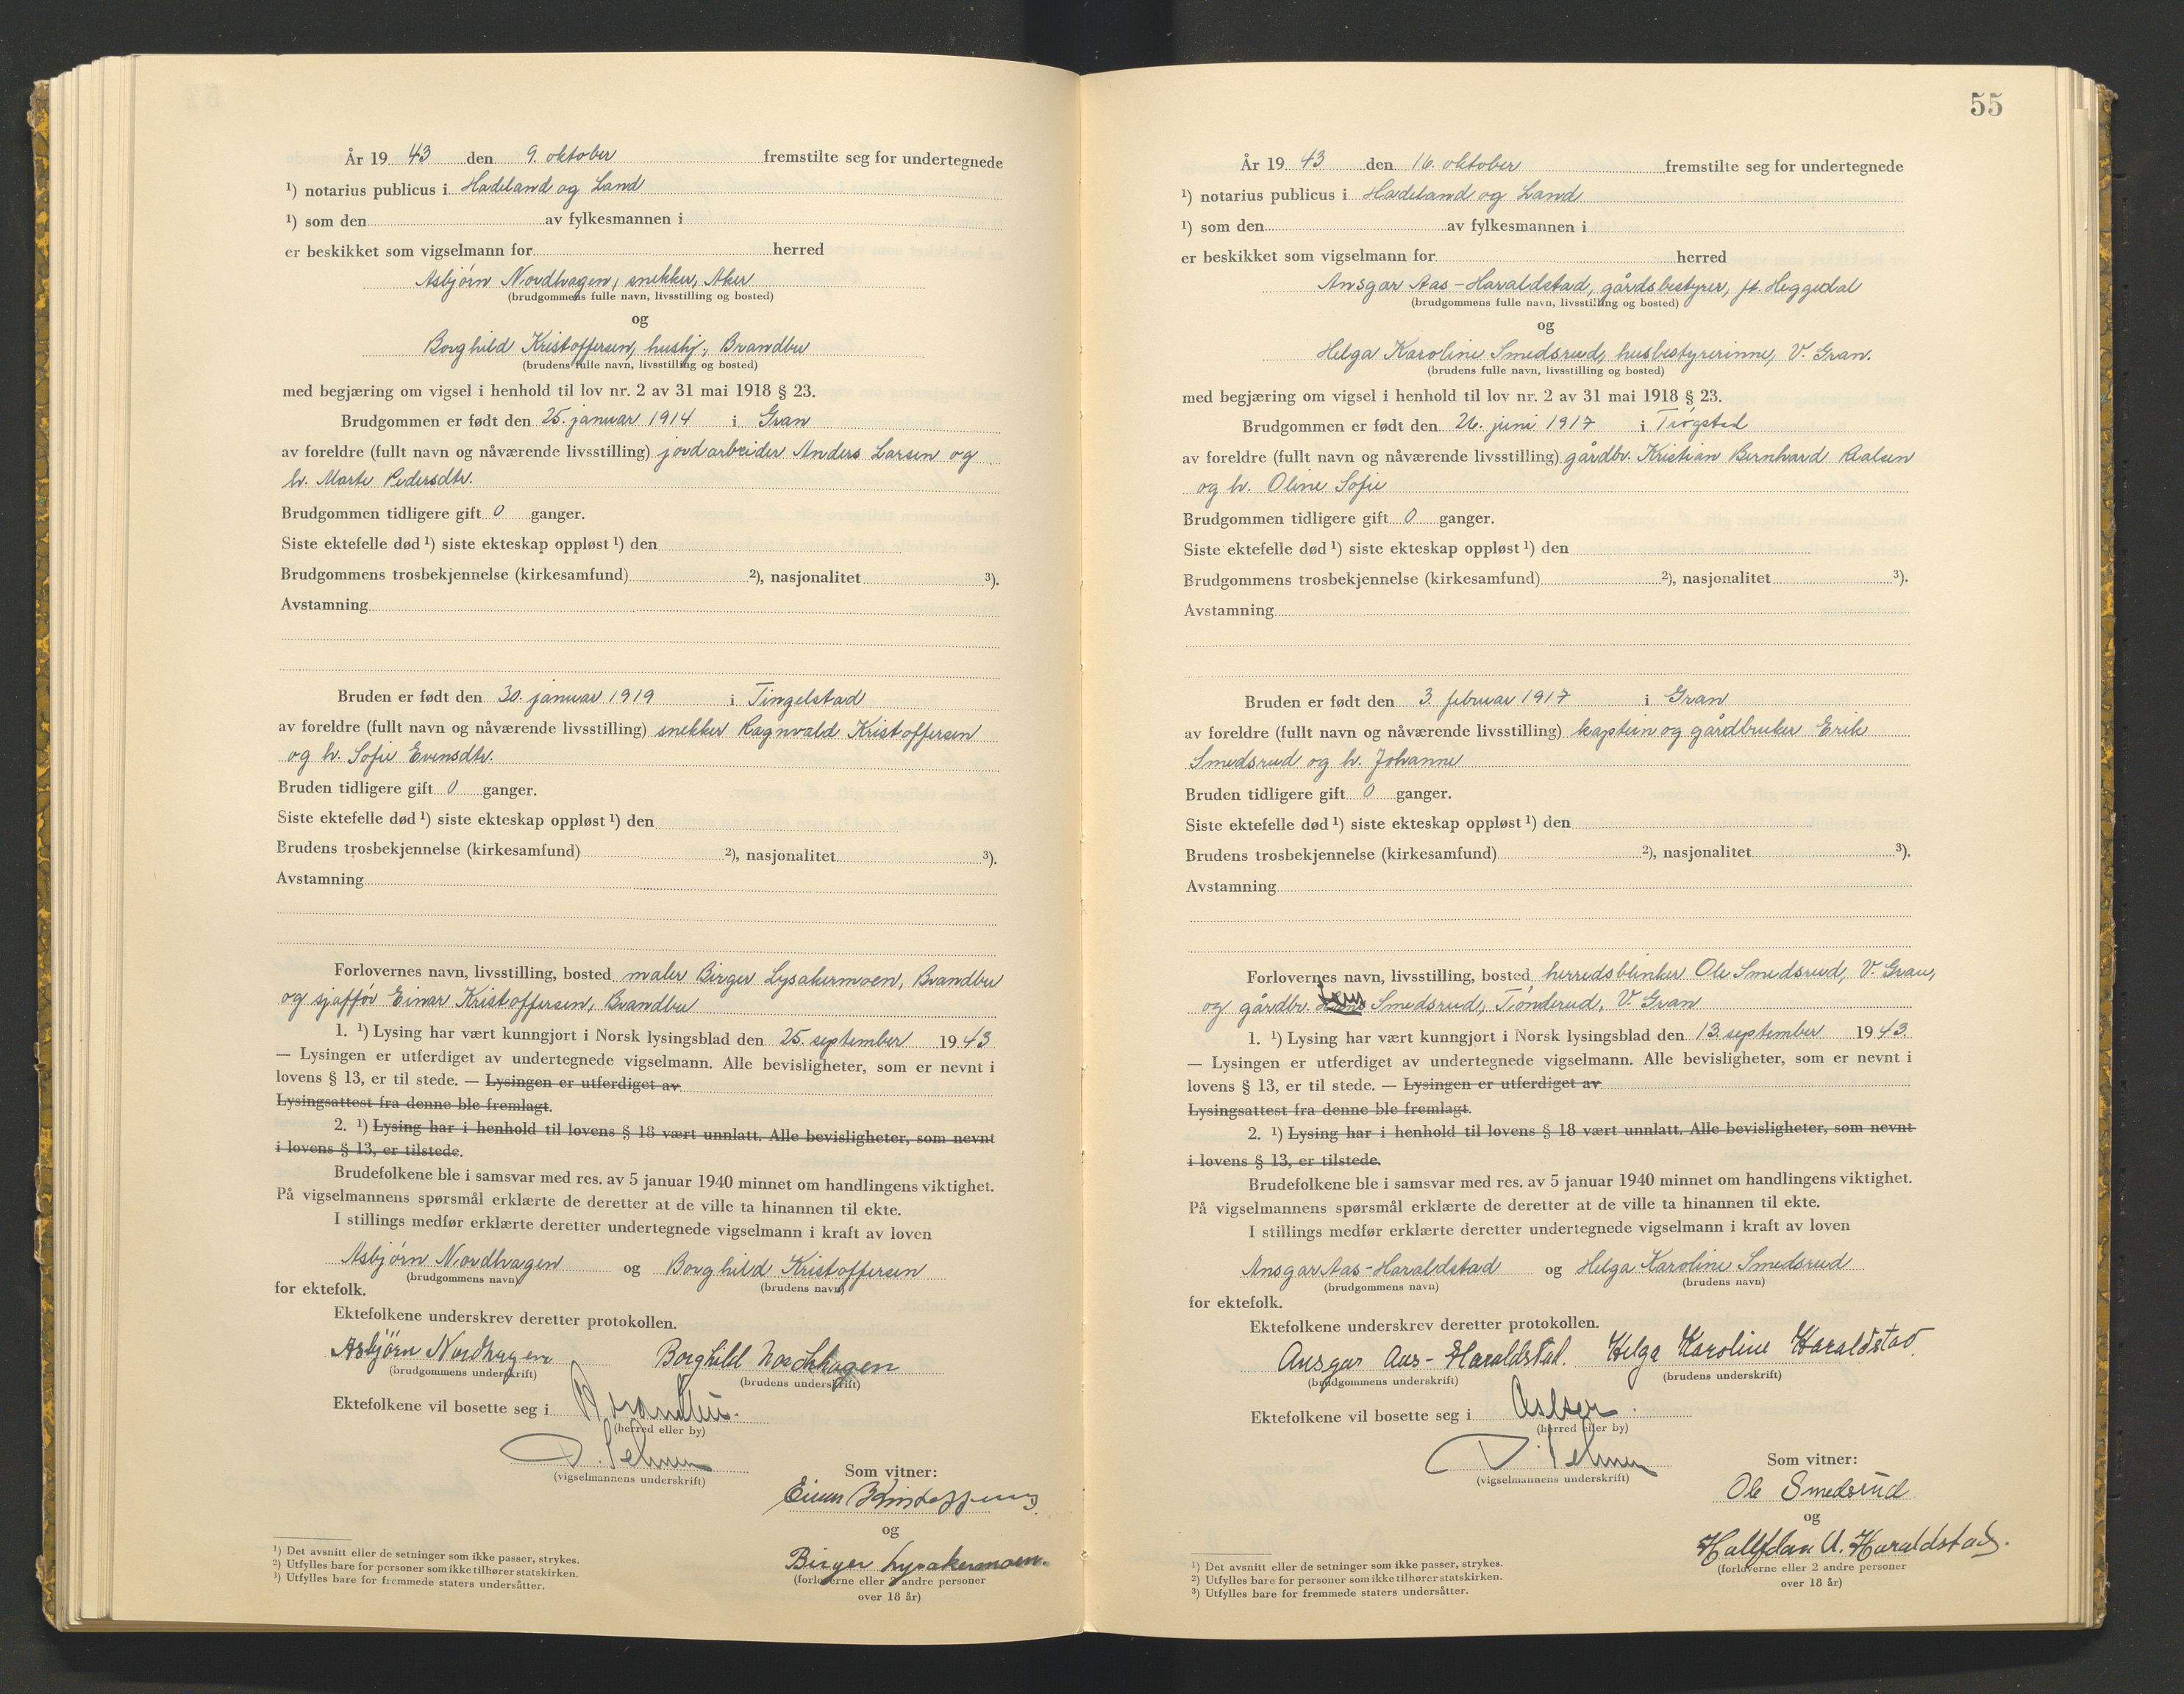 År 19 43 den 9. oktober fremstilte seg for undertegnede
¹) notarius publicus i Hadeland og Land
¹) som den av fylkesmannen i
er beskikket som vigselmann for herred
Asbjørn Nordhagen, snekker, Aker
(brudgommens fulle navn, livsstilling og bosted)
og
Borghild Kristoffersen, hushj., Brandbu
(brudens fulle navn, livsstilling og bosted)
med begjæring om vigsel i henhold til lov nr. 2 av 31 mai 1918 § 23.
Brudgommen er født den 25. januar 1914 i Gran
av foreldre (fullt navn og nåværende livsstilling) jordarbeider Anders Larsen og
h. Marte Pedersdtr.
Brudgommen tidligere gift 0 ganger.
Siste ektefelle død ¹) siste ekteskap oppløst ¹) den
Brudgommens trosbekjennelse (kirkesamfund) ²), nasjonalitet ³).
Avstamning
Bruden er født den 30. januar 1919 i Tingelstad
av foreldre (fullt navn og nåværende livsstilling) snekker Ragnvald Kristoffersen
og h. Sofie Evensdtr.
Bruden tidligere gift 0 ganger.
Siste ektefelle død ¹) siste ekteskap oppløst ¹) den
Brudens trosbekjennelse (kirkesamfund) ²), nasjonalitet ³).
Avstamning
Forlovernes navn, livsstilling, bosted maler Birger Lysakermoen, Brandbu
og sjaffør Einar Kristoffersen, Brandbu
1. ¹) Lysing har vært kunngjort i Norsk lysingsblad den 25. september 19 43
— Lysingen er utferdiget av undertegnede vigselmann. Alle bevisligheter, som er nevnt i
lovens § 13, er til stede. — Lysingen er utferdiget av
Lysingsattest fra denne ble fremlagt.
2. ¹) Lysing har i henhold til lovens § 18 vært unnlatt. Alle bevisligheter, som nevnt
i lovens § 13, er tilstede.
Brudefolkene ble i samsvar med res. av 5 januar 1940 minnet om handlingens viktighet.
På vigselmannens spørsmål erklærte de deretter at de ville ta hinannen til ekte.
I stillings medfør erklærte deretter undertegnede vigselmann i kraft av loven
Asbjørn Nordhagen og Borghild Kristoffersen
(brudgommens navn) (brudens navn)
for ektefolk.
Ektefolkene underskrev deretter protokollen.
Asbjørn Nordhagen Borghild Nordhagen
(brudgommens underskrift) (brudens underskrift)
Ektefolkene vil bosette seg i Brandbu.
(herred eller by)
(vigselmannens underskrift)
Som vitner:
Einar Kristoffersen
og
Birger Lysakermoen.
(forloverne eller 2 andre personer
over 18 år)
¹) Det avsnitt eller de setninger som ikke passer, strykes.
²) Utfylles bare for personer som ikke tilhører statskirken.
³) Utfylles bare for fremmede staters undersåtter.
55
År 19 43 den 16. oktober fremstilte seg for undertegnede
¹) notarius publicus i Hadeland og Land
¹) som den av fylkesmannen i
er beskikket som vigselmann for herred
Ansgar Aas-Haraldstad, gårdsbestyrer, pt. Heggedal
(brudgommens fulle navn, livsstilling og bosted)
og
Helga Karoline Smedsrud, husbestyrerinne, V. Gran.
(brudens fulle navn, livsstilling og bosted)
med begjæring om vigsel i henhold til lov nr. 2 av 31 mai 1918 § 23.
Brudgommen er født den 26. juni 1917 i Trøgstad
av foreldre (fullt navn og nåværende livsstilling) gårdbr. Kristian Bernhard
og h. Oline Sofie
Brudgommen tidligere gift 0 ganger.
Siste ektefelle død ¹) siste ekteskap oppløst ¹) den
Brudgommens trosbekjennelse (kirkesamfund) ²), nasjonalitet ³).
Avstamning
Bruden er født den 3. februar 1917 i Gran
av foreldre (fullt navn og nåværende livsstilling) kaptein og gårdbruker Erik
Smedsrud og h. Johanne
Bruden tidligere gift 0 ganger.
Siste ektefelle død ¹) siste ekteskap oppløst ¹) den
Brudens trosbekjennelse (kirkesamfund) ²), nasjonalitet ³).
Avstamning
Forlovernes navn, livsstilling, bosted herredsblinker Ole Smedsrud, V. Gran,
og gårdbr. Smedsrud, Tønderud, V. Gran
1. ¹) Lysing har vært kunngjort i Norsk lysingsblad den 13. september 19 43
— Lysingen er utferdiget av undertegnede vigselmann. Alle bevisligheter, som er nevnt i
lovens § 13, er til stede. — Lysingen er utferdiget av
Lysingsattest fra denne ble fremlagt.
2. ¹) Lysing har i henhold til lovens § 18 vært unnlatt. Alle bevisligheter, som nevnt
i lovens § 13, er tilstede.
Brudefolkene ble i samsvar med res. av 5 januar 1940 minnet om handlingens viktighet.
På vigselmannens spørsmål erklærte de deretter at de ville ta hinannen til ekte.
I stillings medfør erklærte deretter undertegnede vigselmann i kraft av loven
Ansgar Aas-Haraldstad og Helga Karoline Smedsrud
(brudgommens navn) (brudens navn)
for ektefolk.
Ektefolkene underskrev deretter protokollen.
Ansgar Aas-Haraldstad. Helga Karoline Haraldstad
(brudgommens underskrift) (brudens underskrift)
Ektefolkene vil bosette seg i Asker.
(herred eller by)
(vigselmannens underskrift)
Som vitner:
Ole Smedsrud
og
Halfdan A. Haraldstad.
(forloverne eller 2 andre personer
over 18 år)
¹) Det avsnitt eller de setninger som ikke passer, strykes.
²) Utfylles bare for personer som ikke tilhører statskirken.
³) Utfylles bare for fremmede staters undersåtter.